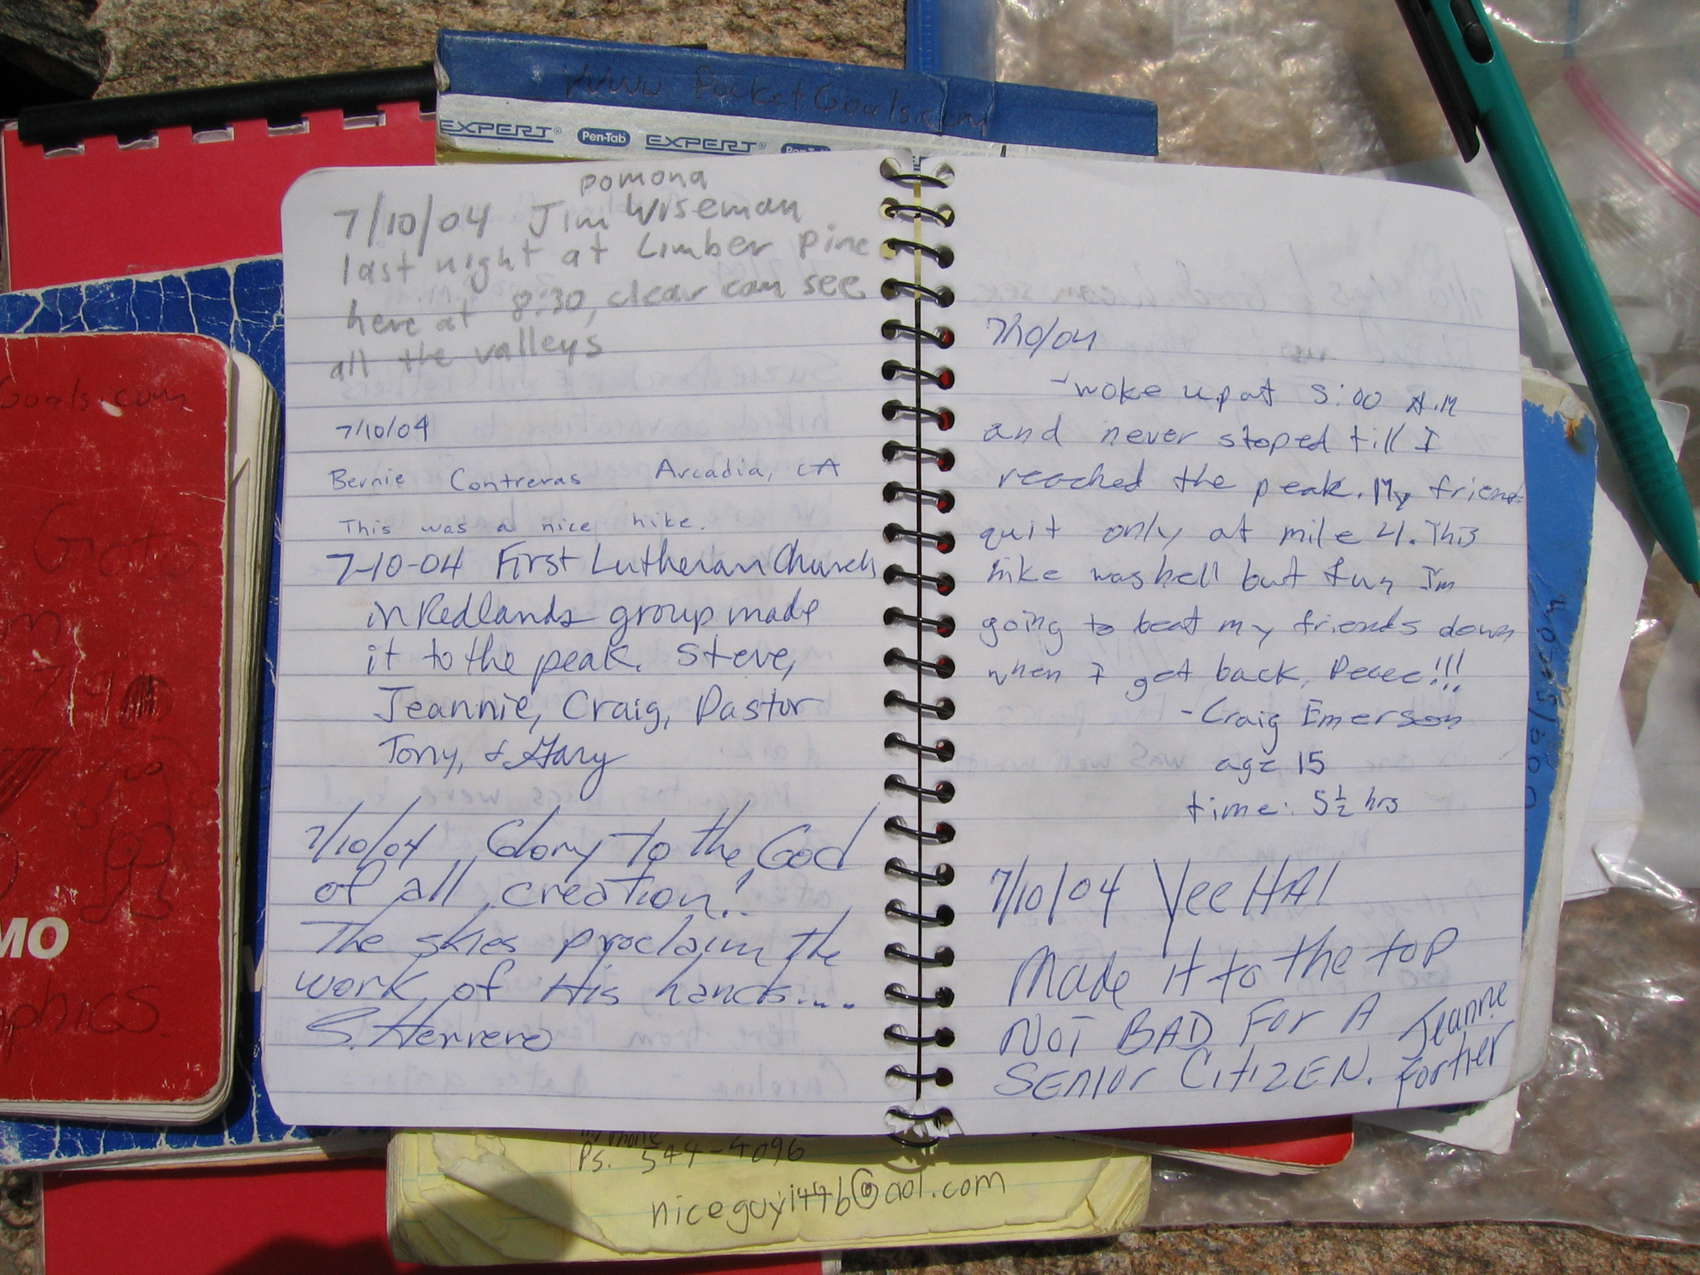 www PocketGoals.com
EXPERT® Pen-Tab EXPERT®
Goals.com
Goto
MO
phics
pomona
7/10/04 Jim Wiseman
last night at Limber Pine
here at 8:30, clear can see
all the valleys
7/10/04
Bernie Contreras Arcadia, CA
This was a nice hike.
7-10-04 First Lutheran Church
in Redlands group made
it to the peak. Steve,
Jeannie, Craig, Pastor
Tony, & Gary
7/10/04 Glory to the God
of all creation!
The skies proclaim the
work of His hands....
S. Herrero
7/10/04
- woke up at 5:00 A.M
and never stoped till I
reached the peak. My friend
quit only at mile 4. This
hike was hell but fun, I'm
going to beat my friends down
when I get back, Peece!!!
- Craig Emerson
age 15
time: 5 1/2 hrs
7/10/04 Yee HA!
Made it to the top
NOT BAD FOR A
SENIOR CITIZEN. Jeanne
Fortier
Ps. 544-4096
@aol.com